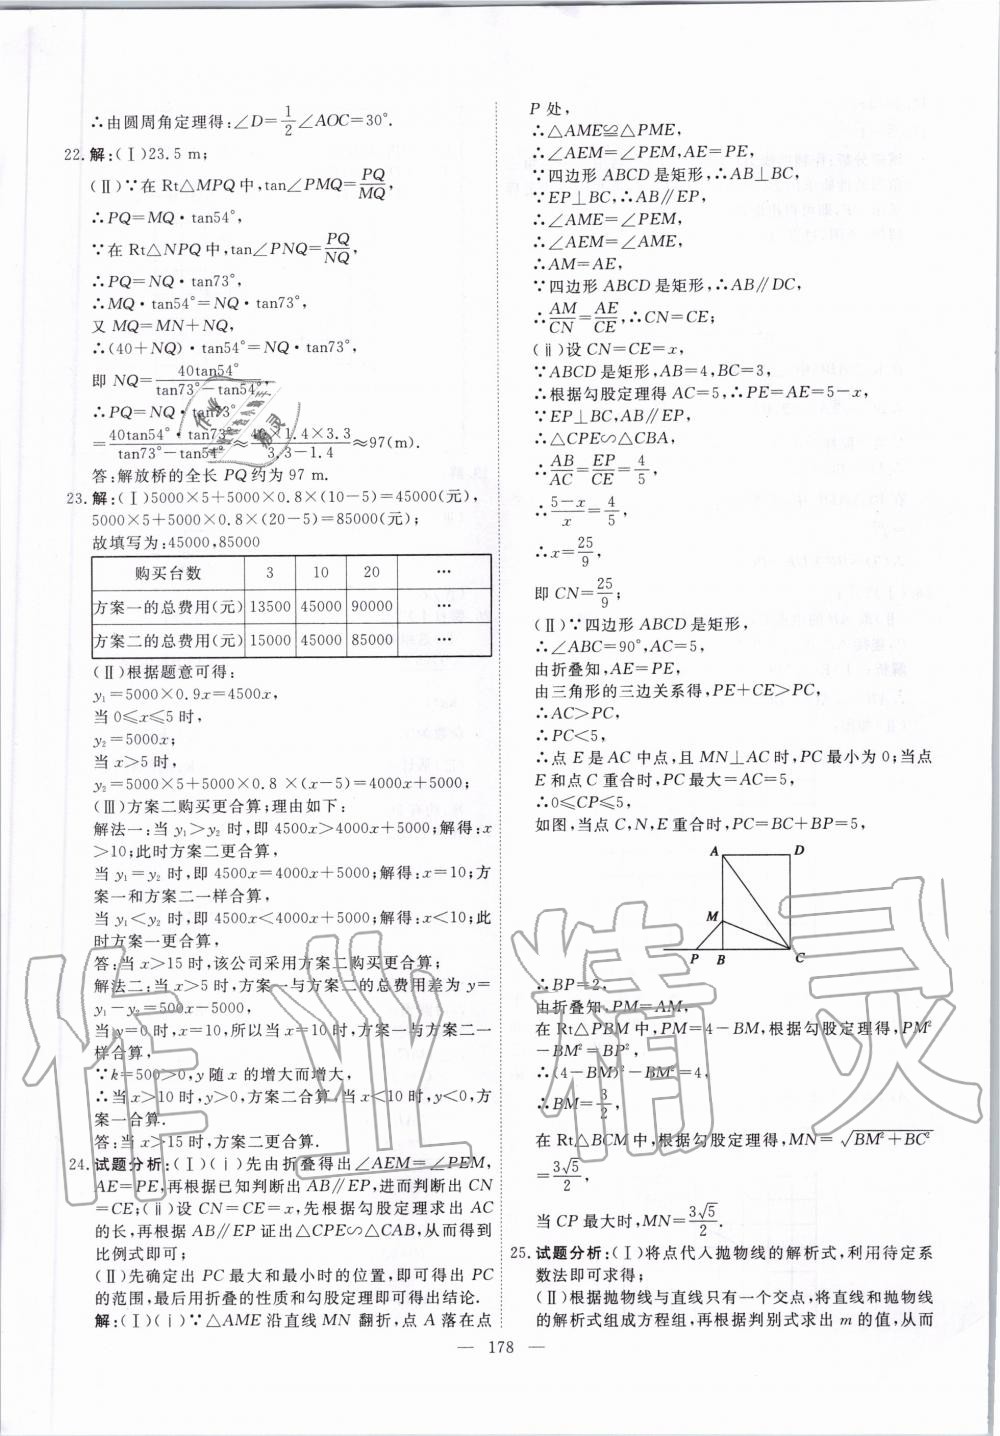 ∴由圆周角定理得:∠D=1/2∠AOC=30°.
22.解:(Ⅰ)23.5 m;
(Ⅱ)∵在 Rt△MPQ 中,tan∠PMQ=PQ/MQ,
∴PQ=MQ·tan54°,
∵在 Rt△NPQ 中,tan∠PNQ=PQ/NQ,
∴PQ=NQ·tan73°,
∴MQ·tan54°=NQ·tan73°,
又 MQ=MN+NQ,
∴(40+NQ)·tan54°=NQ·tan73°,
即 NQ=40tan54°/(tan73°-tan54°),
∴PQ=NQ·tan73°
=40tan54°·tan73°/(tan73°-tan54°)≈40×1.4×3.3/(3.3-1.4)≈97(m).
答:解放桥的全长 PQ约为 97 m.
23.解:(Ⅰ)5000×5+5000×0.8×(10-5)=45000(元),
5000×5+5000×0.8×(20-5)=85000(元);
故填写为:45000,85000
购买台数 3 10 20 …
方案一的总费用(元) 13500 45000 90000 …
方案二的总费用(元) 15000 45000 85000 …
(Ⅱ)根据题意可得:
y₁=5000×0.9x=4500x,
当 0≤x≤5 时,
y₂=5000x;
当 x>5 时,
y₂=5000×5+5000×0.8 ×(x-5)=4000x+5000;
(Ⅲ)方案二购买更合算;理由如下:
解法一:当 y₁>y₂ 时,即 4500x>4000x+5000;解得:x
>10;此时方案二更合算,
当 y₁=y₂ 时,即 4500x=4000x+5000;解得:x=10;方
案一和方案二一样合算,
当 y₁<y₂ 时,即 4500x<4000x+5000;解得:x<10;此
时方案一更合算,
答:当 x>15 时,该公司采用方案二购买更合算;
解法二:当 x>5 时,方案一与方案二的总费用差为 y=
y₁-y₂=500x-5000,
当 y=0 时,x=10,所以当 x=10 时,方案一与方案二一
样合算,
∵k=500>0,y 随 x 的增大而增大,
∴当 x>10 时,y>0,方案二合算,当 x<10 时,y<0,方
案一合算.
答:当 x>15 时,方案二更合算.
24.试题分析:(Ⅰ)(ⅰ)先由折叠得出∠AEM=∠PEM,
AE=PE,再根据已知判断出 AB∥EP,进而判断出 CN
=CE;(ⅱ)设 CN=CE=x,先根据勾股定理求出 AC
的长,再根据 AB∥EP 证出△CPE∽△CAB,从而得到
比例式即可;
(Ⅱ)先确定出 PC 最大和最小时的位置,即可得出 PC
的范围,最后用折叠的性质和勾股定理即可得出结论.
解:(Ⅰ)(ⅰ)∵△AME 沿直线 MN 翻折,点 A 落在点
P 处,
∴△AME≌△PME,
∴∠AEM=∠PEM,AE=PE,
∵四边形 ABCD 是矩形,∴AB⊥BC,
∵EP⊥BC,∴AB∥EP,
∴∠AME=∠PEM,
∴∠AEM=∠AME,
∴AM=AE,
∵四边形 ABCD 是矩形,∴AB∥DC,
∴AM/CN=AE/CE,∴CN=CE;
(ⅱ)设 CN=CE=x,
∵ABCD 是矩形,AB=4,BC=3,
∴根据勾股定理得 AC=5,∴PE=AE=5-x,
∵EP⊥BC,AB∥EP,
∴△CPE∽△CBA,
∴AB/AC=EP/CE=4/5,
∴(5-x)/x=4/5,
∴x=25/9,
即 CN=25/9;
(Ⅱ)∵四边形 ABCD 是矩形,
∴∠ABC=90°,AC=5,
由折叠知,AE=PE,
由三角形的三边关系得,PE+CE>PC,
∴AC>PC,
∴PC<5,
∴点 E 是 AC 中点,且 MN⊥AC 时,PC 最小为 0;当点
E 和点 C 重合时,PC 最大=AC=5,
∴0≤CP≤5,
如图,当点 C,N,E 重合时,PC=BC+BP=5,
A D
M
P B C
∴BP=2,
由折叠知,PM=AM,
在 Rt△PBM 中,PM=4-BM,根据勾股定理得,PM²
-BM²=BP²,
∴(4-BM)²-BM²=4,
∴BM=3/2,
在 Rt△BCM 中,根据勾股定理得,MN=√(BM²+BC²)
=3√5/2,
当 CP 最大时,MN=3√5/2.
25.试题分析:(Ⅰ)将点代入抛物线的解析式,利用待定系
数法即可求得;
(Ⅱ)根据抛物线与直线只有一个交点,将直线和抛物线
的解析式组成方程组,再根据判别式求出 m 的值,从而
— 178 —
作业精灵
作业精灵